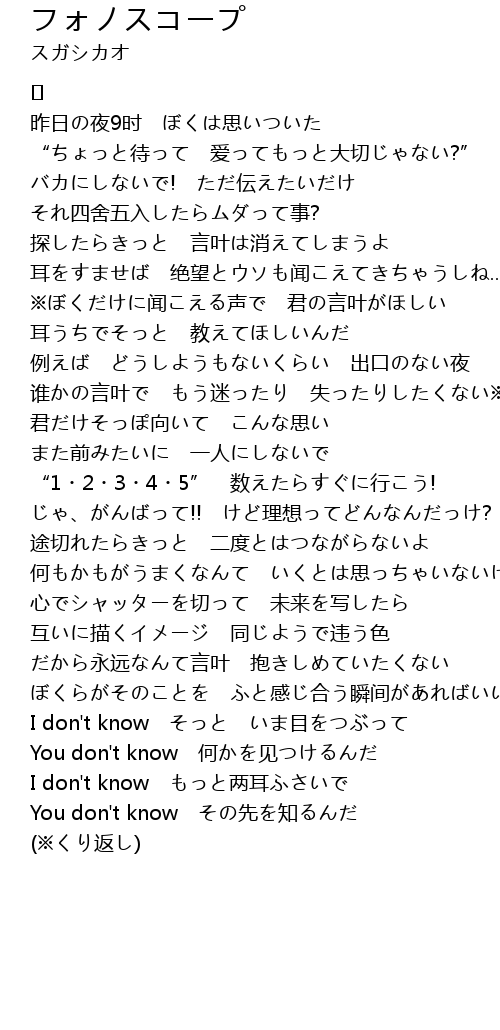 フォノスコープ
スガシカオ
[]
昨日の夜9时　ぼくは思いついた
“ちょっと待って　爱ってもっと大切じゃない?”
バカにしないで!　ただ伝えたいだけ
それ四舍五入したらムダって事?
探したらきっと　言叶は消えてしまうよ
耳をすませば　绝望とウソも闻こえてきちゃうしね…
※ぼくだけに闻こえる声で　君の言叶がほしい
耳うちでそっと　教えてほしいんだ
例えば　どうしようもないくらい　出口のない夜
谁かの言叶で　もう迷ったり　失ったりしたくない※
君だけそっぽ向いて　こんな思い
また前みたいに　一人にしないで
“1・2・3・4・5”　数えたらすぐに行こう!
じゃ、がんばって!!　けど理想ってどんなんだっけ?
途切れたらきっと　二度とはつながらないよ
何もかもがうまくなんて　いくとは思っちゃいないけ
心でシャッターを切って　未来を写したら
互いに描くイメージ　同じようで违う色
だから永远なんて言叶　抱きしめていたくない
ぼくらがそのことを　ふと感じ合う瞬间があればいい
I don't know　そっと　いま目をつぶって
You don't know　何かを见つけるんだ
I don't know　もっと两耳ふさいで
You don't know　その先を知るんだ
(※くり返し)